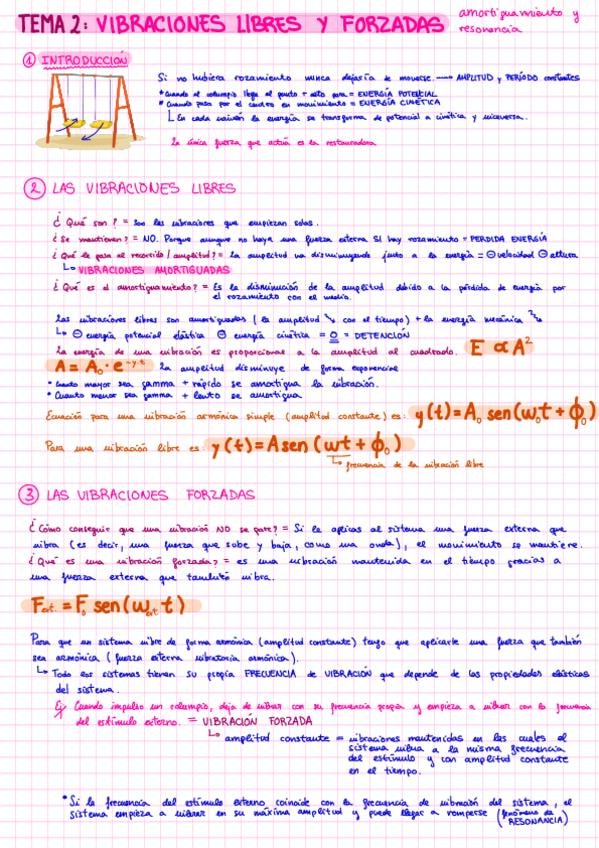 TEMA 2: VIBRACIONES LIBRES Y FORZADAS amortiguamiento y
resonancia
① INTRODUCCIÓN
Si no hubiera rozamiento nunca dejaría de moverse. → AMPLITUD y PERÍODO constantes
* Cuando el columpio llega al punto + alto para = ENERGÍA POTENCIAL
* Cuando pasa por el centro en movimiento = ENERGÍA CINÉTICA
↳ En cada vaivén la energía se transforma de potencial a cinética y viceversa.
La única fuerza que actúa es la restauradora
② LAS VIBRACIONES LIBRES
¿Qué son? = Son las vibraciones que empiezan solas.
¿Se mantienen? = NO. Porque aunque no haya una fuerza externa SI hay rozamiento = PERDIDA ENERGÍA
¿Qué le pasa al recorrido / amplitud? = La amplitud va disminuyendo junto a la energía = ⊖velocidad ⊖altura
↳ VIBRACIONES AMORTIGUADAS
¿Qué es el amortiguamiento? = Es la disminución de la amplitud debido a la pérdida de energía por
el rozamiento con el medio.
Las vibraciones libres son amortiguadas (la amplitud ↘ con el tiempo) + la energía mecánica ↘
↳ ⊖ energía potencial elástica ⊖ energía cinética = 0 = DETENCIÓN
La energía de una vibración es proporcional a la amplitud al cuadrado. E ∝ A²
A = A₀ · e^-γ·t La amplitud disminuye de forma exponencial
* Cuanto mayor sea gamma + rápido se amortigua la vibración.
* Cuanto menor sea gamma + lento se amortigua.
Ecuación para una vibración armónica simple (amplitud constante) es: y(t) = A₀ sen(ω₀t + ϕ₀)
Para una vibración libre es: y(t) = A sen(ωt + ϕ₀)
↳ frecuencia de la vibración libre
③ LAS VIBRACIONES FORZADAS
¿Cómo conseguir que una vibración NO se pare? = Si le aplicas al sistema una fuerza externa que
vibra (es decir, una fuerza que sube y baja, como una onda), el movimiento se mantiene.
¿Qué es una vibración forzada? = es una vibración mantenida en el tiempo gracias a
una fuerza externa que también vibra.
Fext. = F₀ sen(ωext t)
Para que un sistema vibre de forma armónica (amplitud constante) tengo que aplicarle una fuerza que también
sea armónica (fuerza externa vibratoria armónica).
↳ Todos los sistemas tienen su propia FRECUENCIA de VIBRACIÓN que depende de las propiedades elásticas
del sistema.
Ej Cuando impulso un columpio, deja de vibrar con su frecuencia propia y empieza a vibrar con la frecuencia
del estímulo externo. = VIBRACIÓN FORZADA
↳ amplitud constante = vibraciones mantenidas en las cuales el
sistema vibra a la misma frecuencia
del estímulo y con amplitud constante
en el tiempo.
* Si la frecuencia del estímulo externo coincide con la frecuencia de vibración del sistema, el
sistema empieza a vibrar en su máxima amplitud y puede llegar a romperse (fenómeno de
RESONANCIA)